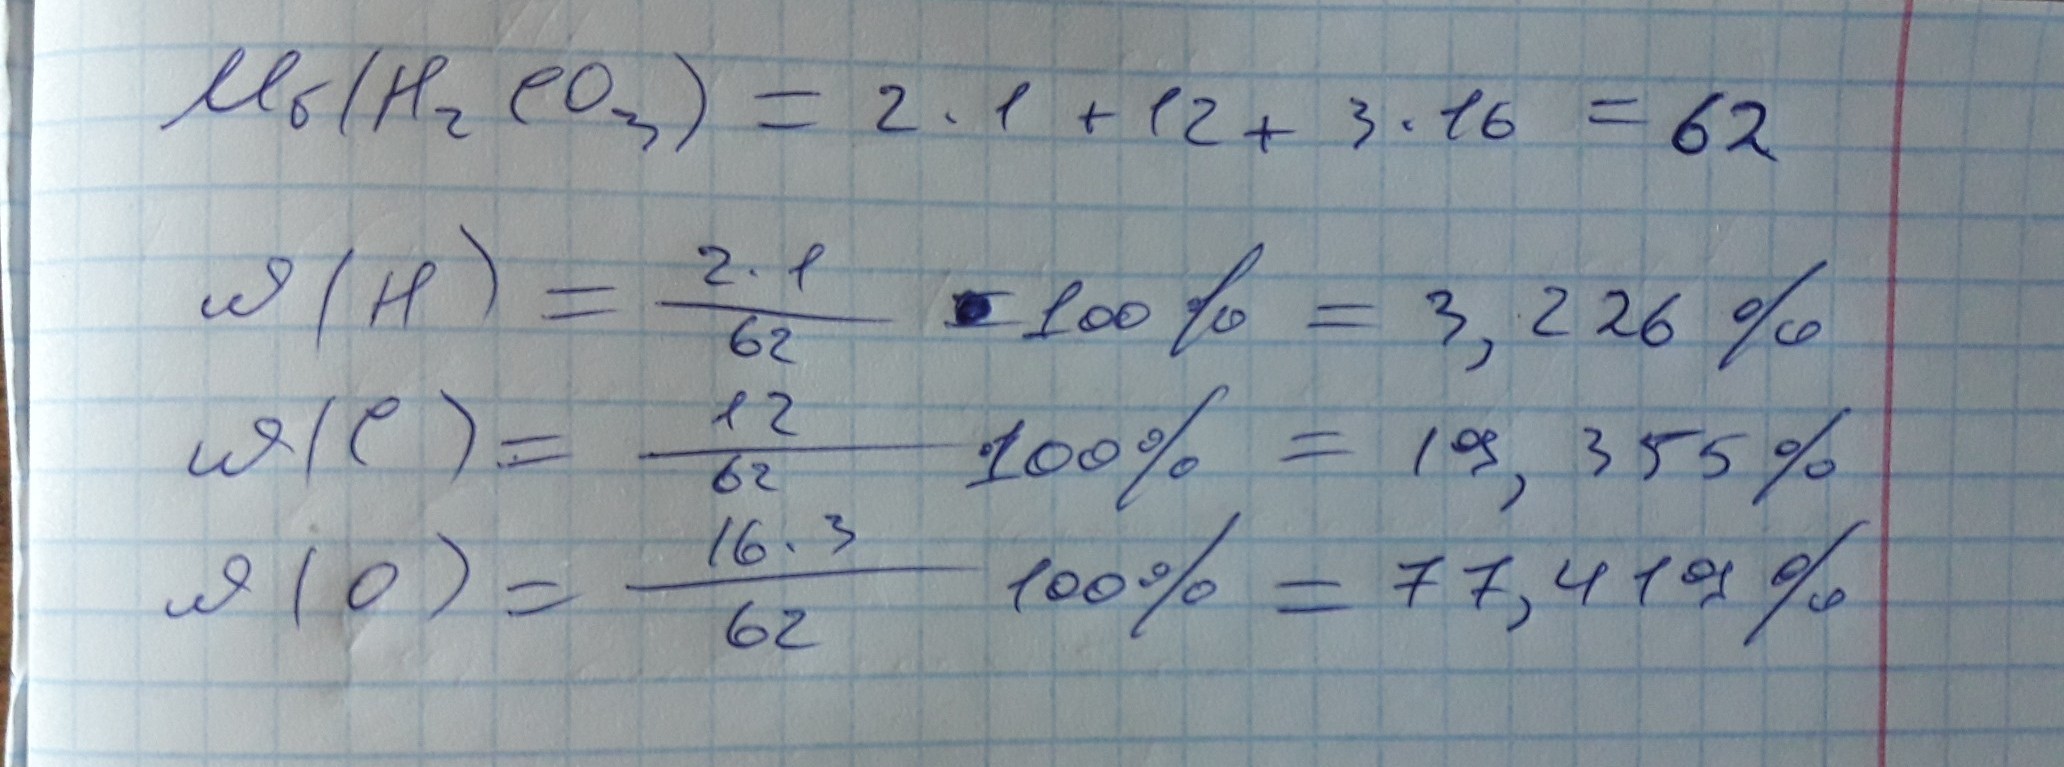 Mб(H₂CO₃) = 2 · 1 + 12 + 3 · 16 = 62
ω(H) = 2 · 1 / 62 · 100% = 3,226%
ω(C) = 12 / 62 · 100% = 19,355%
ω(O) = 16 · 3 / 62 100% = 77,419%